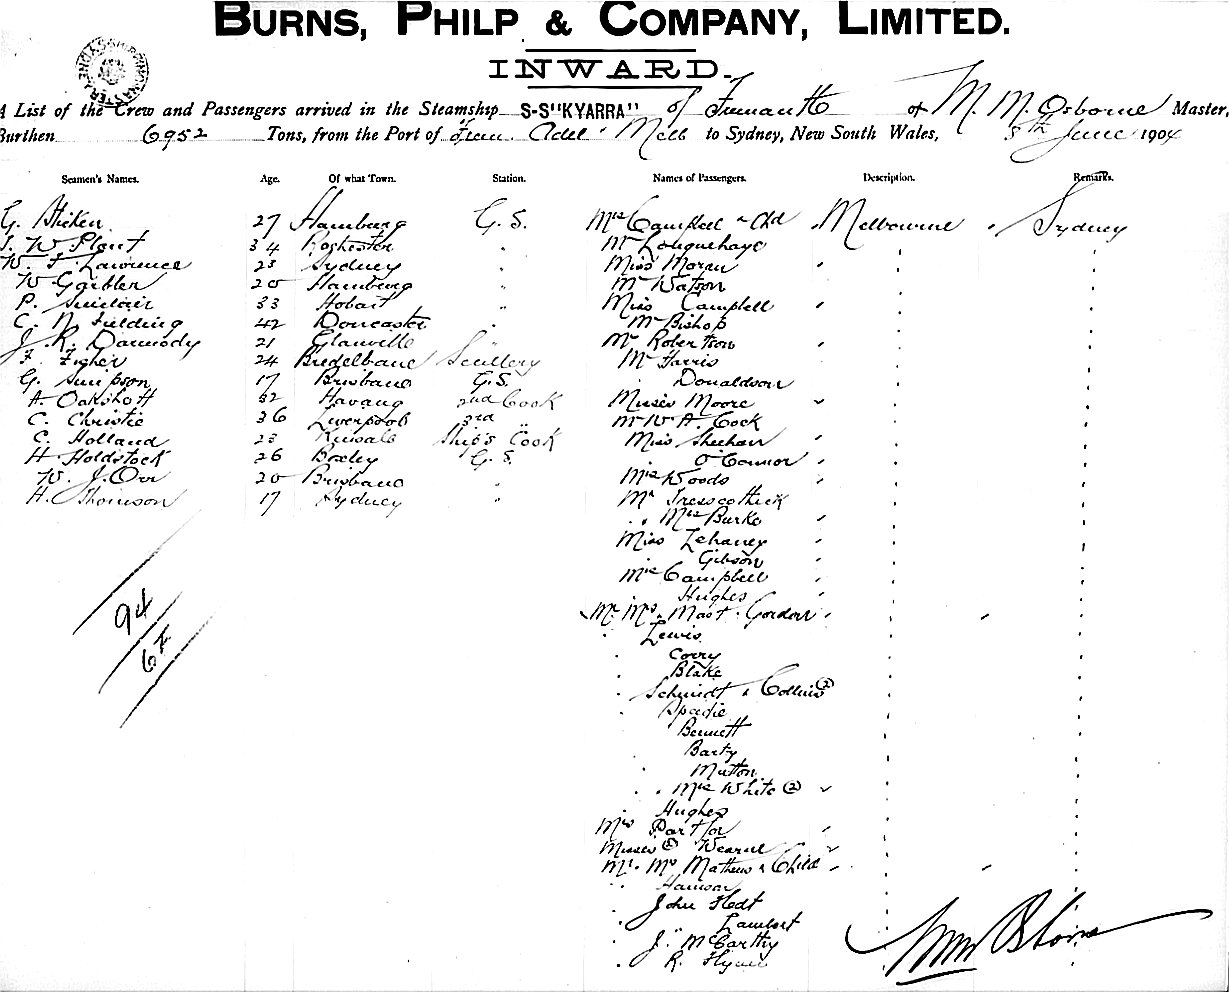 BURNS, PHILP & COMPANY, LIMITED.
INWARD.
A List of the Crew and Passengers arrived in the Steamship S-S "KYARRA" of Fremantle of M. M. Osborne Master,
Burthen 6952 Tons, from the Port of Frem. Adel. Melb to Sydney, New South Wales, 8th June 1904
Seamen's Names. Age. Of what Town. Station. Names of Passengers. Description. Remarks.
G. 27 Hamburg G.S. Mrs Campbell & Chd Melbourne " Sydney
J. W. Plant 34 Rochester " Mr
W. F. Lawrence 23 Sydney " Miss Moran
W. Garbler 20 Hamburg " Mr Watson
P. Sinclair 33 Hobart " Miss Campbell
C. N. Fielding 42 Doncaster " Mr Bishop
J. R. Darmody 21 Glanville " Mr Robertson
F. Fisher 24 Bredelbane Scullery Mr Harris
G. Simpson 17 Brisbane G.S. Donaldson
A Oakshott 32 2nd Cook Misses Moore
C. Christie 36 Liverpool 3rd " Mr W. A. Cock
C. Holland 23 Kinsale Ship's Cook Miss Sheehan
H. Holdstock 26 Boxley G.S. O'Connor
W. J. Orr 20 Brisbane " Mrs Woods
H. Thomson 17 Sydney " Mr Trescothick
" Mrs Burke
Miss Lehaney
Gibson
Mrs Campbell
Hughes
Mr. Mrs. Mast. Gordon
" Lewis
Corry
Blake
Schmidt & Collins (2)
Spadie
Bennett
Barty
Mutton
" " Mrs White (2)
Hughes
Mrs
Misses (2) Wearne
Mr. Mrs Mathews & Child
" Harrison
John
Lambert
J. McCarthy
R. Flynn
94
67